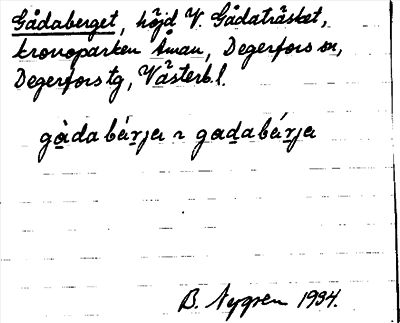 Gådaberget, höjd V. Gådaträsket,
kronoparken Åman, Degerfors sn,
Degerfors tg, Västerb. l.
gàdabárja ~ gadabárja
B. Nygren 1934.